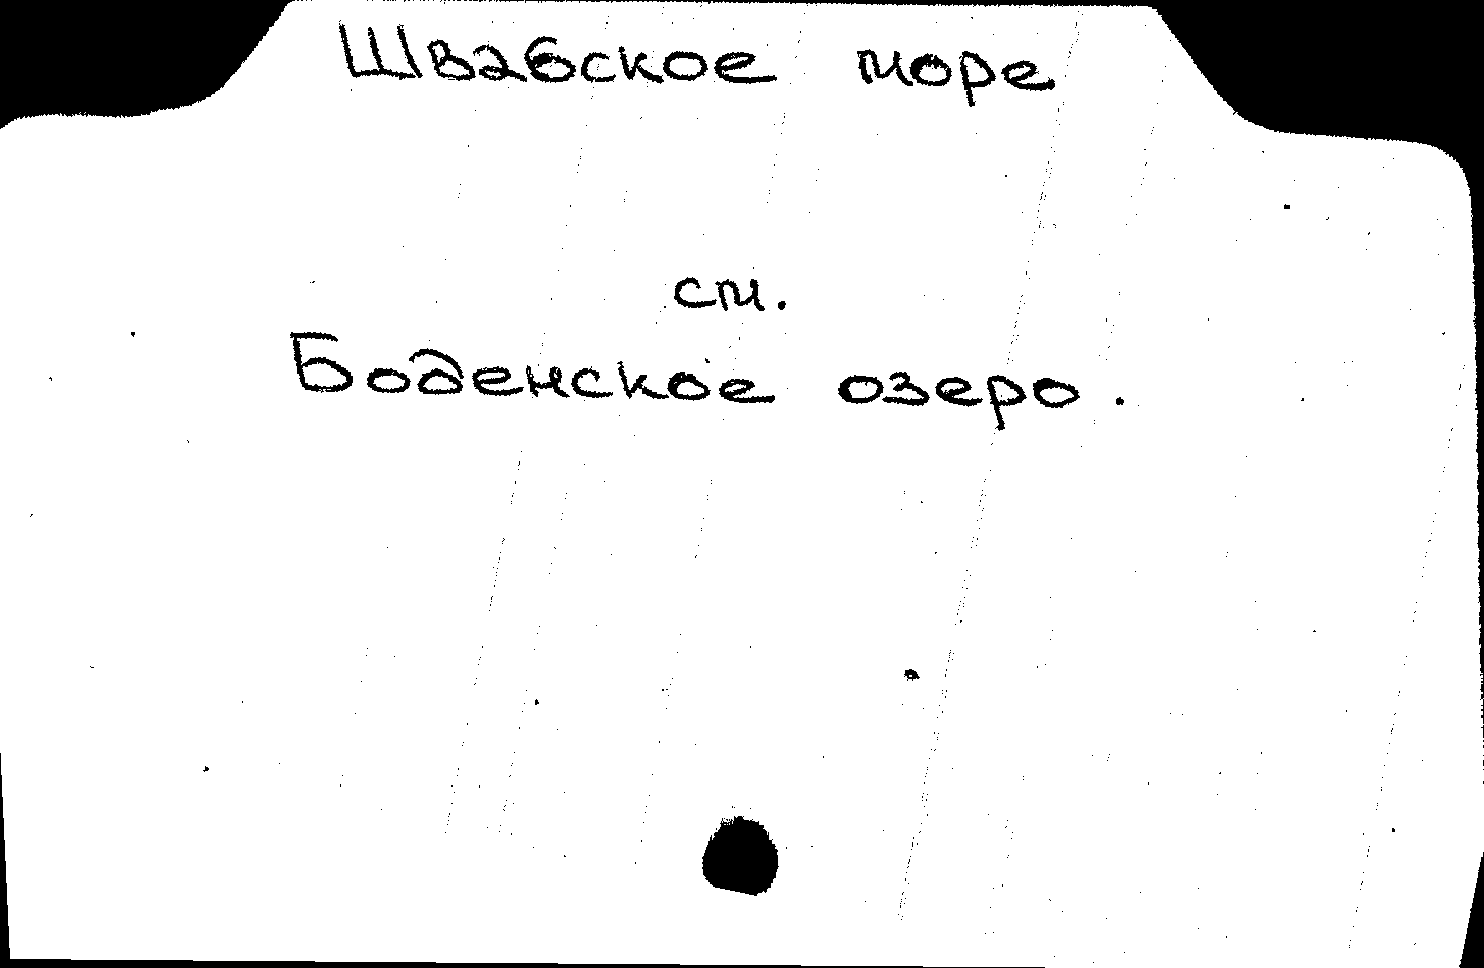 Швабское море
см.
Боденское озеро.